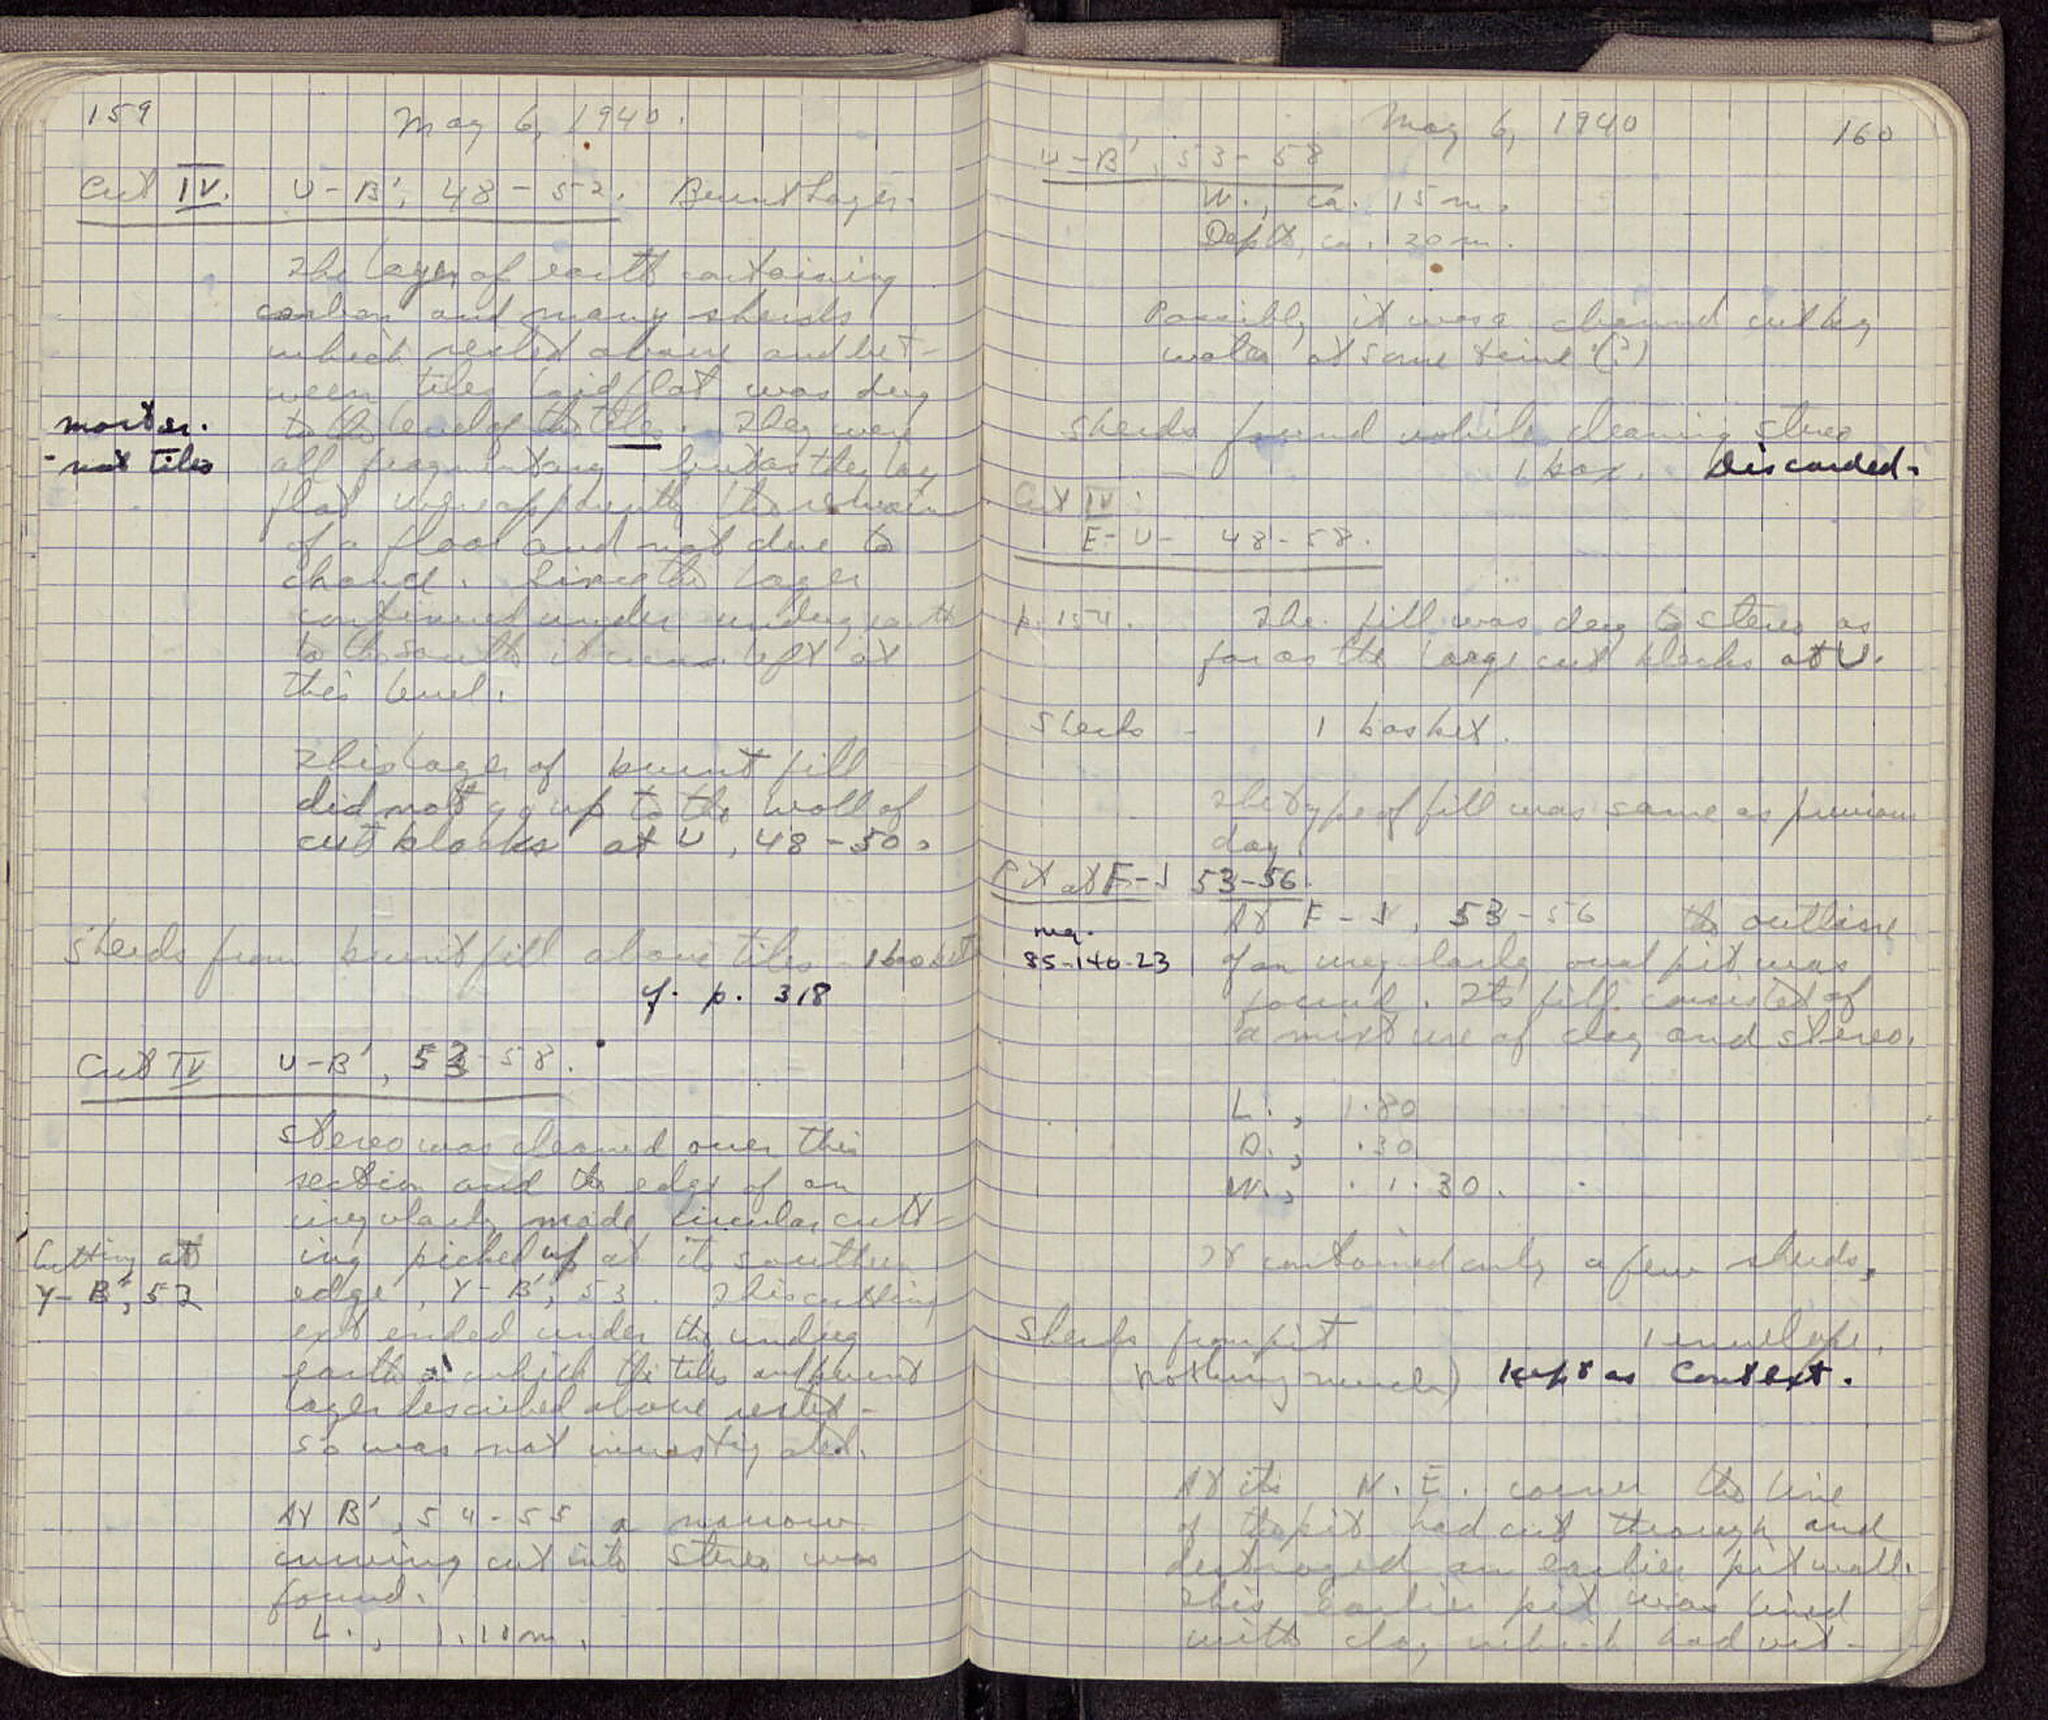 159
May 6, 1940.
Cut IV. U-B', 48-52. Burnt Layer.
The layer of earth containing
carbon and many sherds
which rested above and bet-
ween tiles laid flat was dug
mortar.
- not tiles
to the level of the tiles. They were
all fragmentary but as they lay
flat were apparently the remain
of a floor and not due to
chance. Since the layer
continued under undug earth
to the south it was left at
this level.
This layer of burnt fill
did not go up to the wall of
cut blocks at U, 48-50.
Sherds from burnt fill above tiles - 1 basket
cf. p. 318
Cut IV U-B', 53-58.
Stereo was cleaned over this
section and the edge of an
irregularly made circular cutt-
Cutting at
Y-B', 52
ing picked up at its southern
edge, Y-B', 53. This cutting
extended under the undug
earth on which the tiles and burnt
layer described above rested -
so was not investigated.
At B', 54-55 a narrow
curving cut into stereo was
found.
L., 1.10 m.
May 6, 1940
160
U-B', 53-58
W., ca. .15 m.
Depth, ca. .20 m.
Possibly it was a channel cut by
water at some time (?)
Sherds found while cleaning stereo
1 box. Discarded.
Cut IV:
E-U- 48-58.
p. 154. The fill was dug to stereo as
far as the large cut blocks at U.
Sherds - 1 basket.
The type of fill was same as previous
day.
Pit at F-J 53-56.
At F-J, 53-56 the outline
neg.
85-140-23
of an irregularly oval pit was
found. Its fill consisted of
a mixture of clay and stereo.
L., 1.80
D., .30
W., 1.30.
It contained only a few sherds.
Sherds from pit 1 envelope.
(Nothing much) Kept as Context.
At its N.E. corner the line
of the pit had cut through and
destroyed an earlier pit wall.
This earlier pit was lined
with clay which had vit-